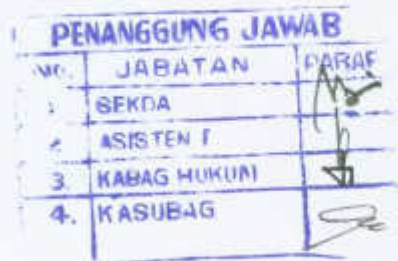 PENANGGUNG JAWAB
NO. JABATAN PARAF
SEKDA
ASISTEN I
3. KABAG HUKUM
4. KASUBAG